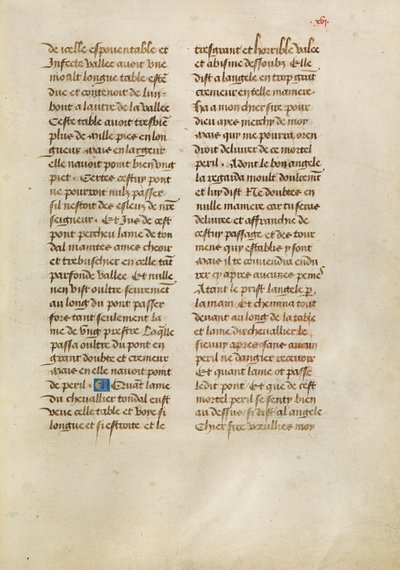 .xvi.
De icelle espouentable et
Infecte vallee auoit vne
moult longue table esten
due et contenoit de lun
bout a lautre de la vallee
Ceste table auoit tresbien
plus de mille piez en lon
gueur Mais en largeur
elle nauoit point bien vng
piet . Certes cestuy pont
ne pouroit nulz passer
sil nestoit des esleuz de nr̄e
seigneur . Et Jus de cest
pont percheu lame de ton
dal maintes ames cheoir
et trebuschier en celle tāt
parfonde vallee Et nulle
nen vist oultre seurement
au long du pont passer
fors tant seulement la
me de vng prestre Laq̄lle
passa oultre du pont en
grant doubte et cremeur
Mais en elle nauoit point
de peril . Quāt lame
Du cheuallier tondal eust
veue celle table et voye si
longue et si estroite et le
tresgrant et horrible valee
et abisme dessoubz Elle
dist a langele en trop grāt
cremeur en telle maniere .
Ha a mon chier sire pour
dieu ayes merchy de moy
Mais qui me pourra oren
droit deliurer de ce mortel
peril . Adont le bon angele
la regarda moult doulcemēt
et luy dist Ne doubtes en
nulle maniere car tu seras
deliure et affranchie de
cestuy passage et des tour
mens qui establis y sont
Mais il te conuiendra endu
rer cy apres aucunes peines
Atant le prist langele p̱
la main Et chemina tout
deuant au long de la table
et lame du cheuallier le
sieuuy apres sans aucun
peril ne dangier receuoir
Et quant lame ot passe
ledit pont Et que de cest
mortel peril se senty bien
au dessus si dist a langele
Chier sire veulliez moy